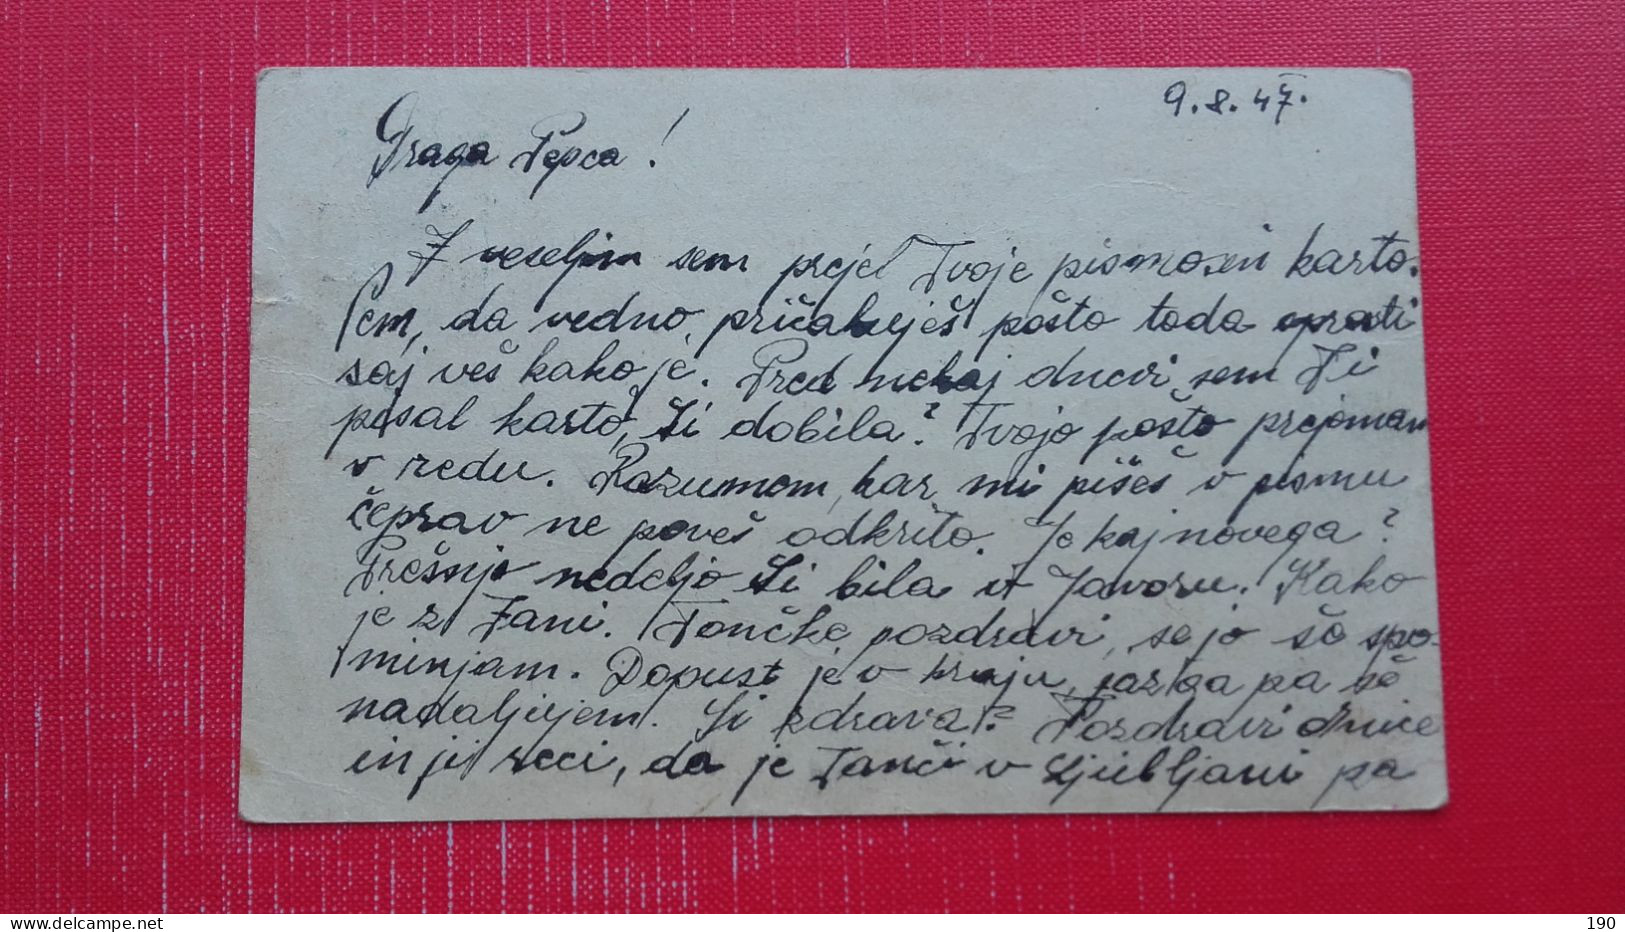 9. 8. 47.
Draga Pepca!
Z veseljem sem prejel Tvoje pismo in karto.
Vem, da vedno pričakuješ pošto toda oprosti
saj veš kako je. Pred nekaj dnevi sem Ti
pisal karto, si dobila? Tvojo pošto prejemam
v redu. Razumem, kar mi pišeš v pismu
čeprav ne poveš odkrito. Je kaj novega?
Prešnjo nedeljo si bila v Javoru. Kako
je z Fani. Tončke pozdravi, se jo še spo-
minjam. Dopust je v kraju, jaz ga pa še
nadaljujem. Si zdrava? Pozdravi
in ji reci, da je Tonči v Ljubljani pa
190